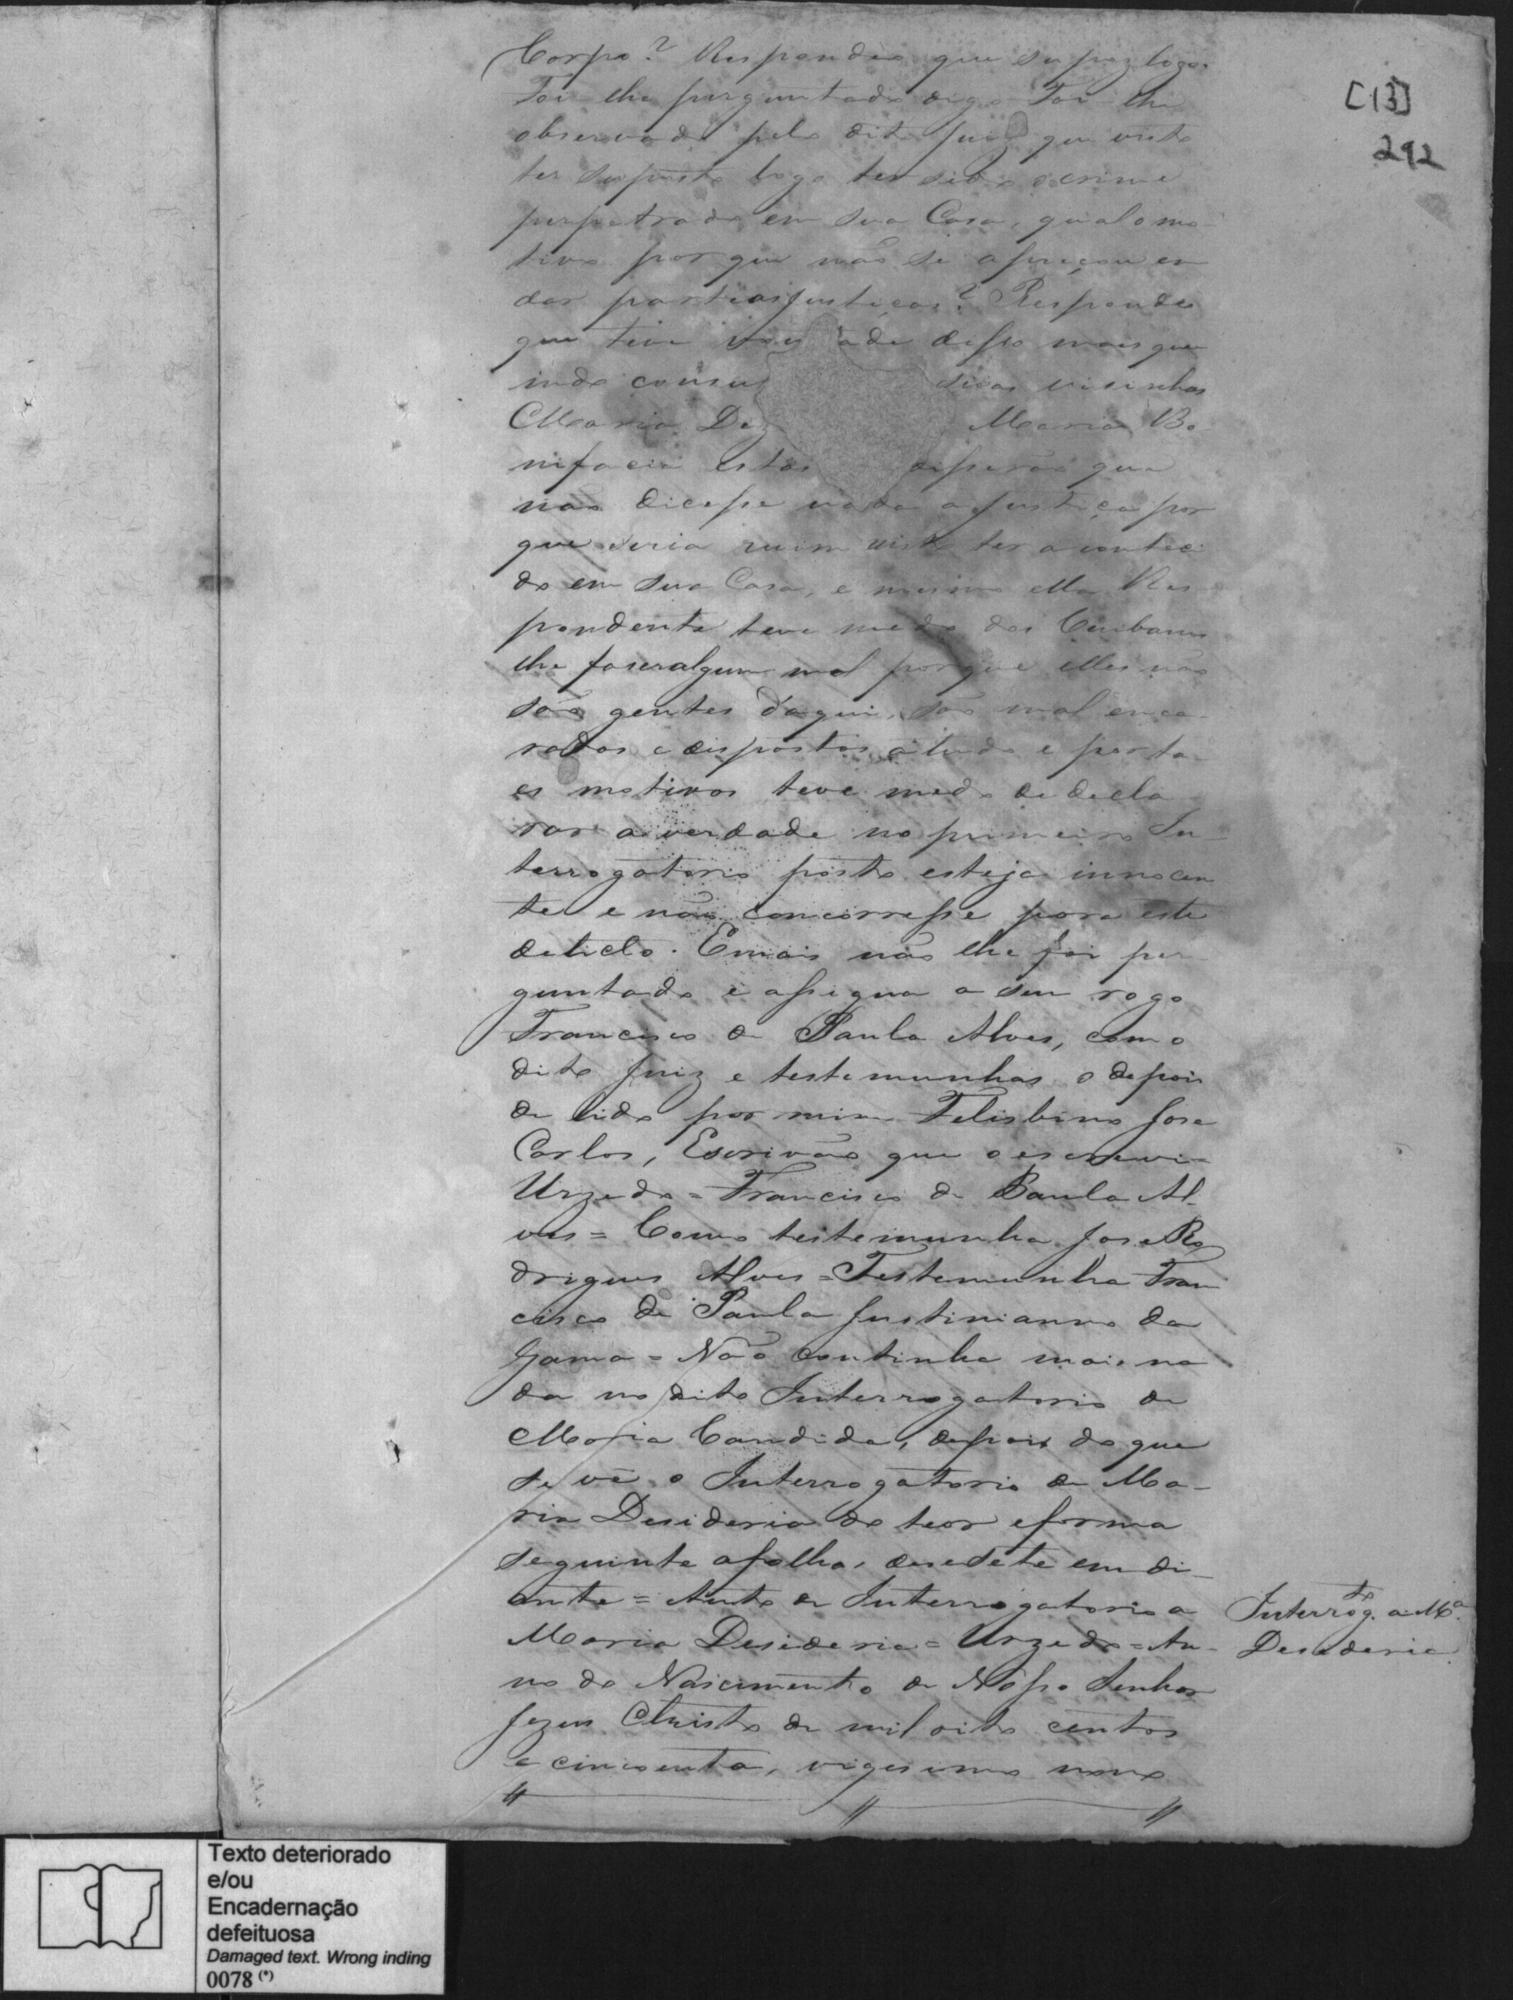 Corpo? Respondeo que supoz logo.
Foi-lhe perguntado digo Foi-lhe
observado pelo dito Juiz que visto
ter suposto logo ter sido o crime
perpetrado em sua Casa, qual o mo-
tivo por que não se apreçou em
dar parte as Justiças? Respondeo
que teve von ade disso mais que
indo consul suas visinhas
Maria De Maria Bo-
nifacia estas disserão que
não dicesse nada a Justiça por
que seria ruim visto ter aconteci-
do em sua Casa, e mesmo ella Res-
pondente teve medo dos
lhe faser algum mal porque elles não
são gentes d'aqui, são mal enca-
rados e dispostos a tudo e por ta-
es motivos teve medo de decla-
rar a verdade no primeiro In-
terrogatorio posto esteja innocen-
te e não concorresse para este
delicto. E mais não lhe foi per-
guntado e assigna a seu rogo
Francisco de Paula Alves, com o
dito Juiz e testemunhas o depois
de lido por mim Felisbino Jose
Carlos, Escrivão que o escrevi =
Urzedo = Francisco de Paula Al-
ves = Como testemunha Jose Ro
drigues Alves = Testemunha Fran
cisco de Paula Justinianno da
Gama = Não continha mais na
da no dito Interrogatorio de
Maria Candida, depois do que
se vê o Interrogatorio de Ma-
ria Desideria do teor e forma
seguinte a folha, desesete em di-
ante = Auto de Interrogatorio a
Maria Desideria = Urzedo = An-
no do Nascimento de Nosso Senhor
Jezus Christo de mil oito centos
e cincoenta, vigesimo nono
[13]
292
Interrog.to a M.a
Desideria
Texto deteriorado
e/ou
Encadernação
defeituosa
Damaged text. Wrong inding
0078 (*)